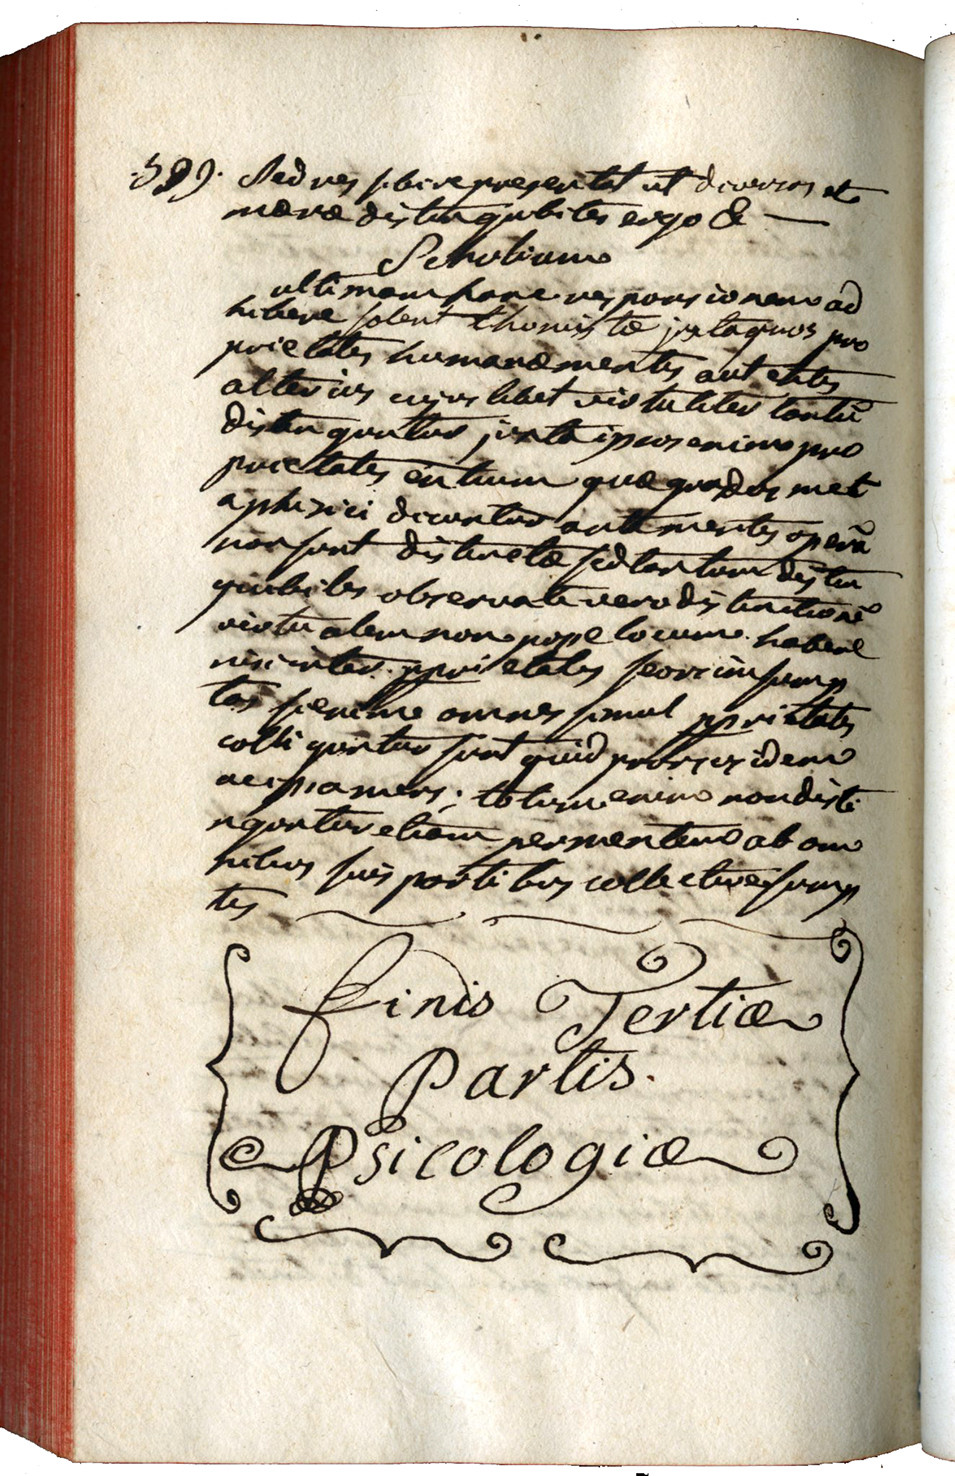 .599. Sed res sibi representat ut diversas et
mere distinguibiles ergo &
Scholium
ultimam hanc responsionem ad
hibere solent thomistæ juxta quos pro
prietates humanæ mentis aut entis
alterius cujuslibet virtualiter tantũ
distinguntur juxta ipsos enim pro
prietates entium quæ gradus met
aphisici dicuntur ante mentis operã
non sunt distinctæ sed tantum distin
guibiles observate vero distinctionẽ
virtualem non posse locum habere
nisi inter pprietates seorsim sump
tas sienim omnes simul pprietates
colliguntur sunt quid prorsus idem
ac ipsa mens; totum enim non disti
nguntur etiam per mentem ab om
nibus suis partibus collective sump
tis
Finis Tertiæ
Partis
Psicologiæ